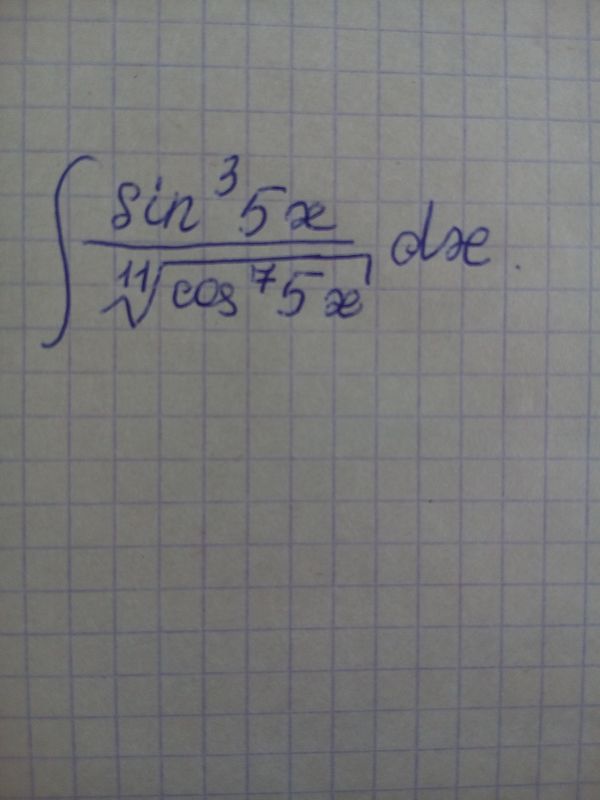 ∫ sin³5x / ¹¹√(cos⁷5x) dx.